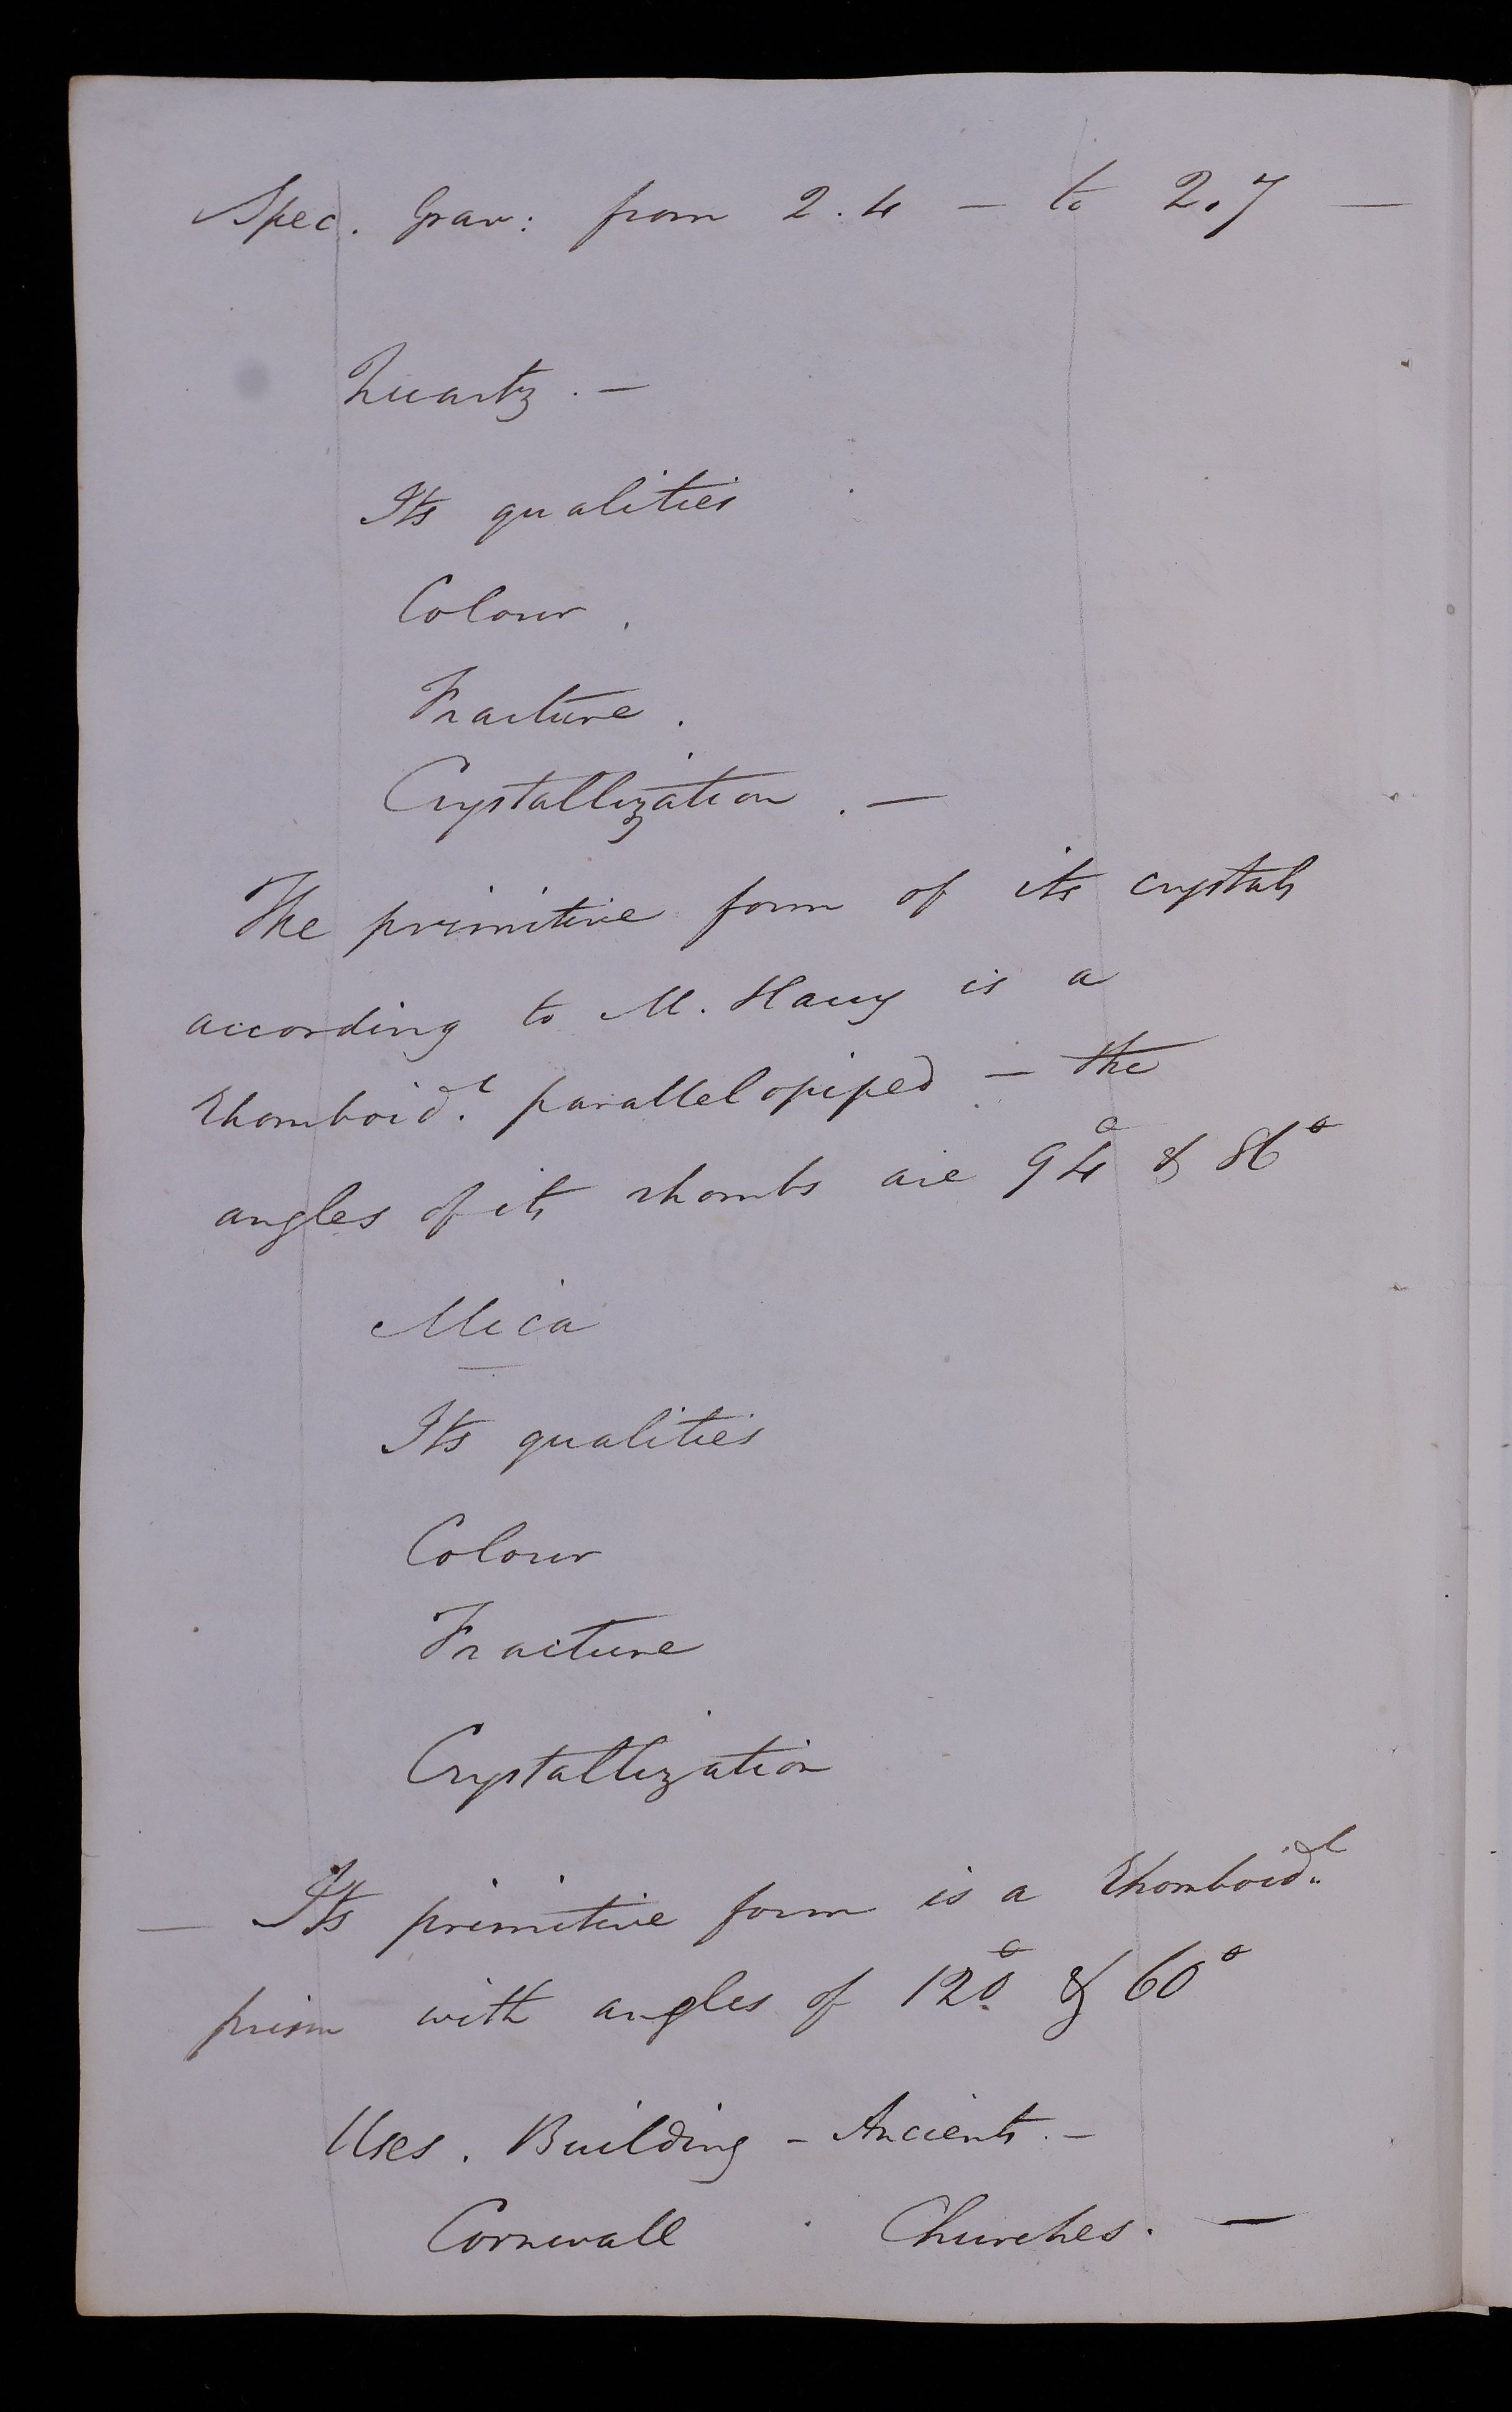 Spec. Grav: from 2.4 — to 2.7 —
Quartz. —
Its qualities
Colour.
Fracture.
Crystallization. —
The primitive form of its crystals
according to M. Hauy is a
Rhomboid.l parallelopiped — the
angles of its rhombs are 94° & 86°
Mica
Its qualities
Colour
Fracture
Crystallization
— Its primitive form is a Rhomboid.l
prism with angles of 120° & 60°
Uses. Building — Ancients. —
Cornwall . Churches. —